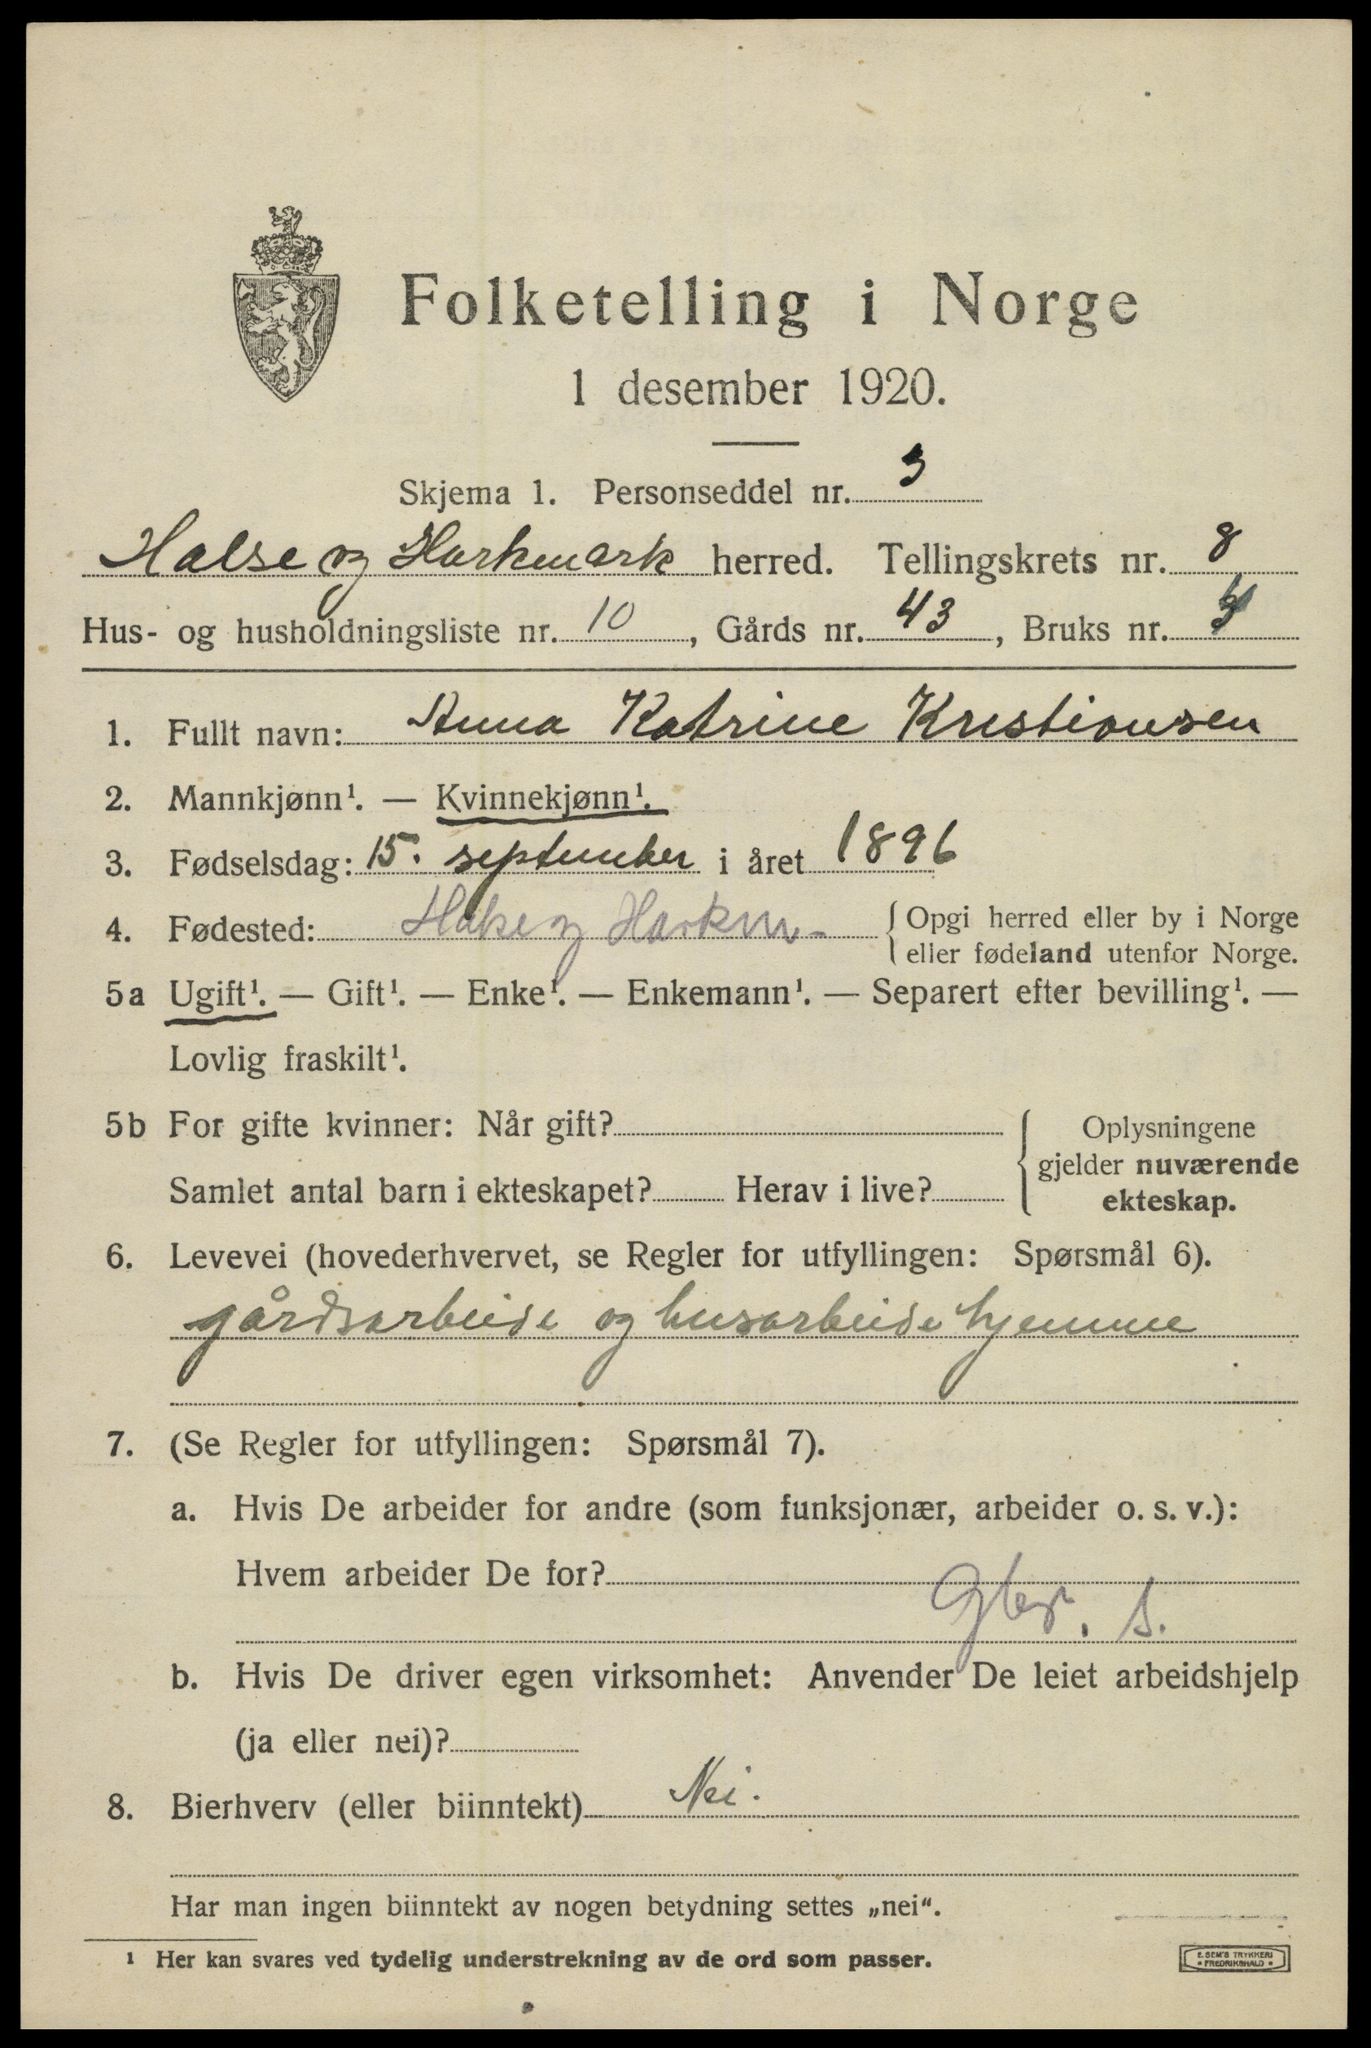 Folketelling i Norge
1 desember 1920.
Skjema 1. Personseddel nr. 3
Halse og Harkmark herred. Tellingskrets nr. 8
Hus- og husholdningsliste nr. 10, Gårds nr. 43, Bruks nr.
1. Fullt navn: Anna Katrine Kristiansen
2. Mannkjønn¹. — Kvinnekjønn¹.
3. Fødselsdag: 15. september i året 1896
4. Fødested: Halse og Harkm. {Opgi herred eller by i Norge
eller fødeland utenfor Norge.
5a Ugift¹. — Gift¹. — Enke¹. — Enkemann¹. — Separert efter bevilling¹. —
Lovlig fraskilt¹.
5b For gifte kvinner: Når gift?
Samlet antal barn i ekteskapet? Herav i live?
Oplysningene
gjelder nuværende
ekteskap.
6. Levevei (hovederhvervet, se Regler for utfyllingen: Spørsmål 6).
gårdsarbeide og husarbeide hjemme
7. (Se Regler for utfyllingen: Spørsmål 7).
a. Hvis De arbeider for andre (som funksjonær, arbeider o. s. v.):
Hvem arbeider De for?
b. Hvis De driver egen virksomhet: Anvender De leiet arbeidshjelp
(ja eller nei)?
8. Bierhverv (eller biinntekt) Nei.
Har man ingen biinntekt av nogen betydning settes „nei“.
¹ Her kan svares ved tydelig understrekning av de ord som passer.
E. SEM'S TRYKKERI
* FREDRIKSHALD *